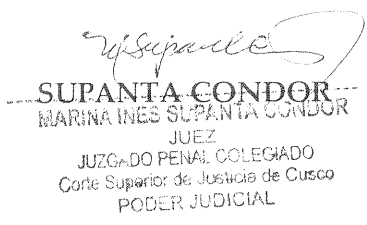 SUPANTA CONDOR
MARINA INES SUPANTA CONDOR
JUEZ
JUZGADO PENAL COLEGIADO
Corte Superior de Justicia de Cusco
PODER JUDICIAL